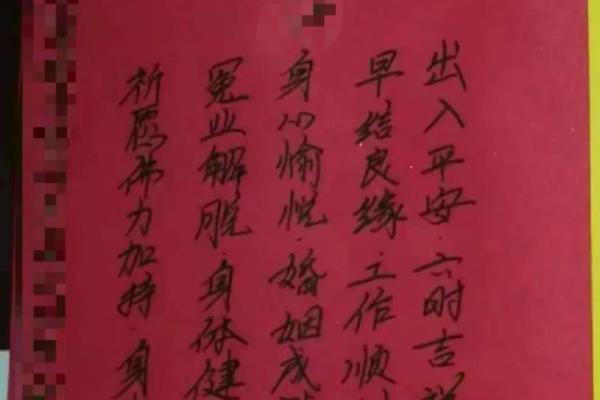 祈愿佛力加持·身
冤业解脱·身体健
身心愉悦·婚姻成
早结良缘·工作顺
出入平安·六时吉祥